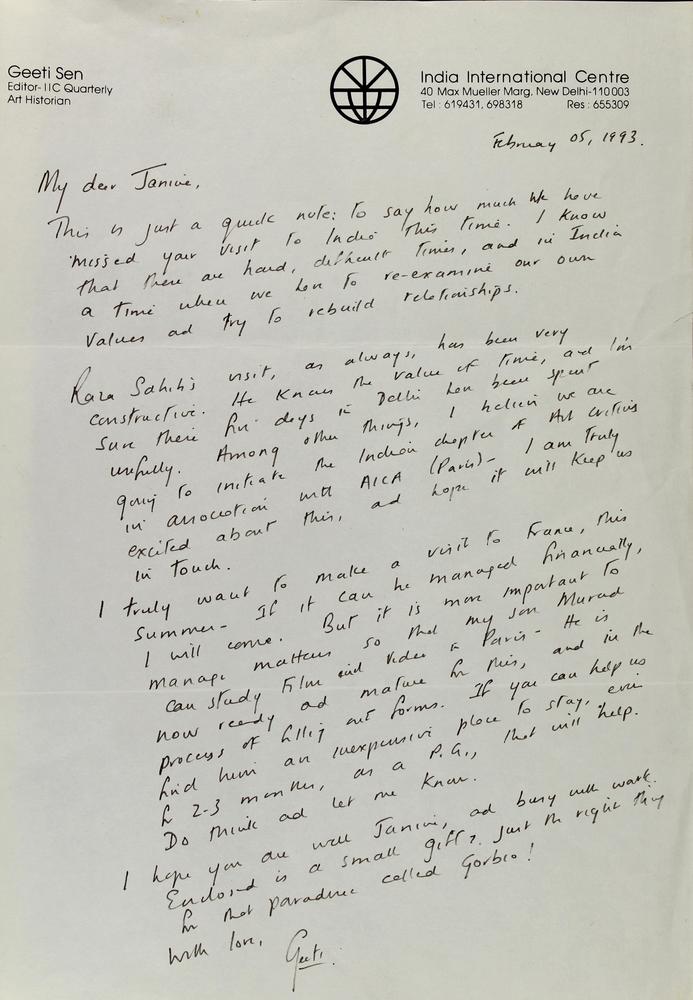 Geeti Sen
Editor-IIC Quarterly
Art Historian
India International Centre
40 Max Mueller Marg, New Delhi-110 003
Tel : 619431, 698318 Res : 655309
February 05, 1993.
My dear Janine,
This is just a quick note: to say how much we have
missed your visit to India this time. I know
that there are hard, difficult times, and in India
a time when we have to re-examine our own
values and try to rebuild relationships.
Raza Sahib's visit, as always, has been very
constructive. He knows the value of time, and I'm
sure these five days in Delhi have been spent
usefully. Among other things, I believe we are
going to initiate the Indian chapter of Art Critics
in association with AICA (Paris) - I am truly
excited about this, and hope it will keep us
in touch.
I truly want to make a visit to France, this
summer - If it can be managed financially,
I will come. But it is more important to
manage matters so that my son Murad
can study Film and Video in Paris - He is
now ready and mature for this, and in the
process of filling out forms. If you can help us
find him an inexpensive place to stay, even
for 2-3 months, as a P.G., that will help.
Do think and let me know.
I hope you are well Janine, and busy with work.
Enclosed is a small gift, just the right thing
for that paradise called Gorbio!
With love,
Geeti.